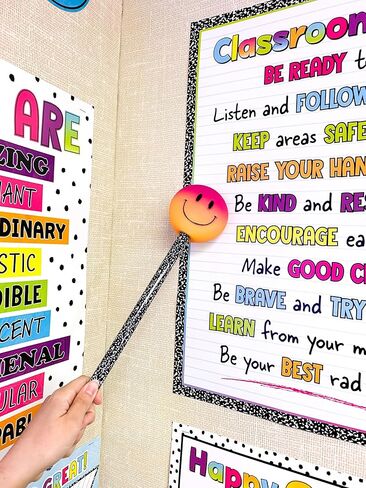 ARE
ZING
IANT
DINARY
STIC
DIBLE
CENT
ENAL
ULAR
GREAT!
Classroom
BE READY t
Listen and FOLLOW
KEEP areas SAFE
RAISE YOUR HAN
Be KIND and RES
ENCOURAGE ea
Make GOOD C
Be BRAVE and TRY
LEARN from your m
Be your BEST rad
Happy